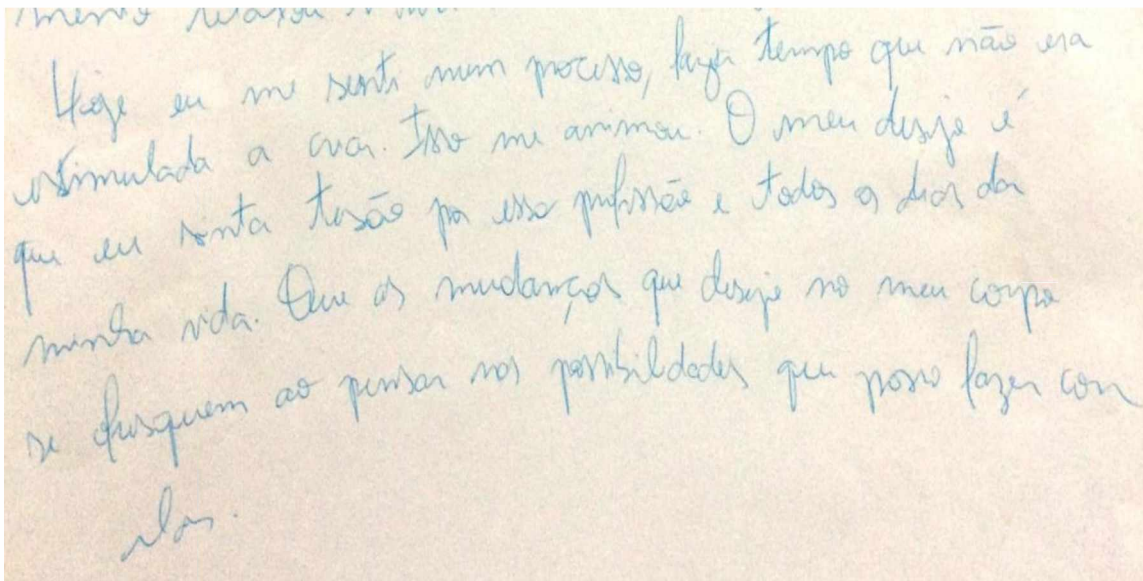 relaxou
Hoje eu me senti num processo, fazia tempo que não era
estimulada a criar. Isso me animou. O meu desejo é
que eu sinta tesão por essa profissão e todos os dias da
minha vida. Que as mudanças que desejo no meu corpo
se ofusquem ao pensar nas possibilidades que posso fazer com
elas.